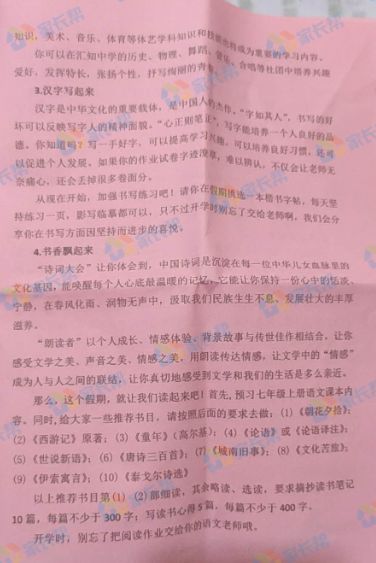 知识，美术、音乐、体育等体艺学科知识和技能也将成为重要的学习内容。
你可以在汇知中学的历史、物理、舞蹈、管乐、合唱等社团中培养兴趣
爱好，发挥特长，张扬个性，抒写绚丽的青春
3.汉字写起来
汉字是中华文化的重要载体，是中国人的杰作，“字如其人”，书写的好
坏可以反映写字人的精神面貌。“心正则笔正”，写字能培养一个人良好的品
德。你知道吗？写一手好字，可以提高学习兴趣，可以培养良好习惯，还可
以促进个人发展。如果你的作业试卷字迹潦草，难以辨认，不仅会让老师无
奈痛心，还会丢掉很多卷面分。
从现在开始，加强书写练习吧！请你在假期挑选一本楷书字帖，每天坚
持练习一页，影写临摹都可以，只不过开学时别忘了交给老师啊，我们会分
享你在书写方面因坚持而进步的喜悦。
4.书香飘起来
“诗词大会”让你体会到，中国诗词是沉淀在每一位中华儿女血脉里的
文化基因，能唤醒每个人心底最温暖的记忆，它能让你保持一份心中的恬淡、
宁静，在春风化雨、润物无声中，汲取我们民族生生不息、发展壮大的丰厚
滋养。
“朗读者”以个人成长、情感体验、背景故事与传世佳作相结合，让你
感受文学之美、声音之美、情感之美，用朗读传达情感，让文学中的“情感”
成为人与人之间的联结，让你真切地感受到文学和我们的生活是多么亲近。
那么，这个假期，就让我们读起来吧！首先，预习七年级上册语文课本内
容。同时，给大家一些推荐书目，请按照后面的要求去做：(1)《朝花夕拾》；
(2)《西游记》原著；(3)《童年》（高尔基）；(4)《论语》或《论语译注》；
(5)《世说新语》；(6)《唐诗三百首》；(7)《城南旧事》；(8)《文化苦旅》；
(9)《伊索寓言》；(10)《泰戈尔诗选》
以上推荐书目第(1)(2)部细读，其余略读、选读，要求摘抄读书笔记
10篇，每篇不少于300字；写读书心得5篇，每篇不少于400字。
开学时，别忘了把阅读作业交给你的语文老师哦。
家长帮